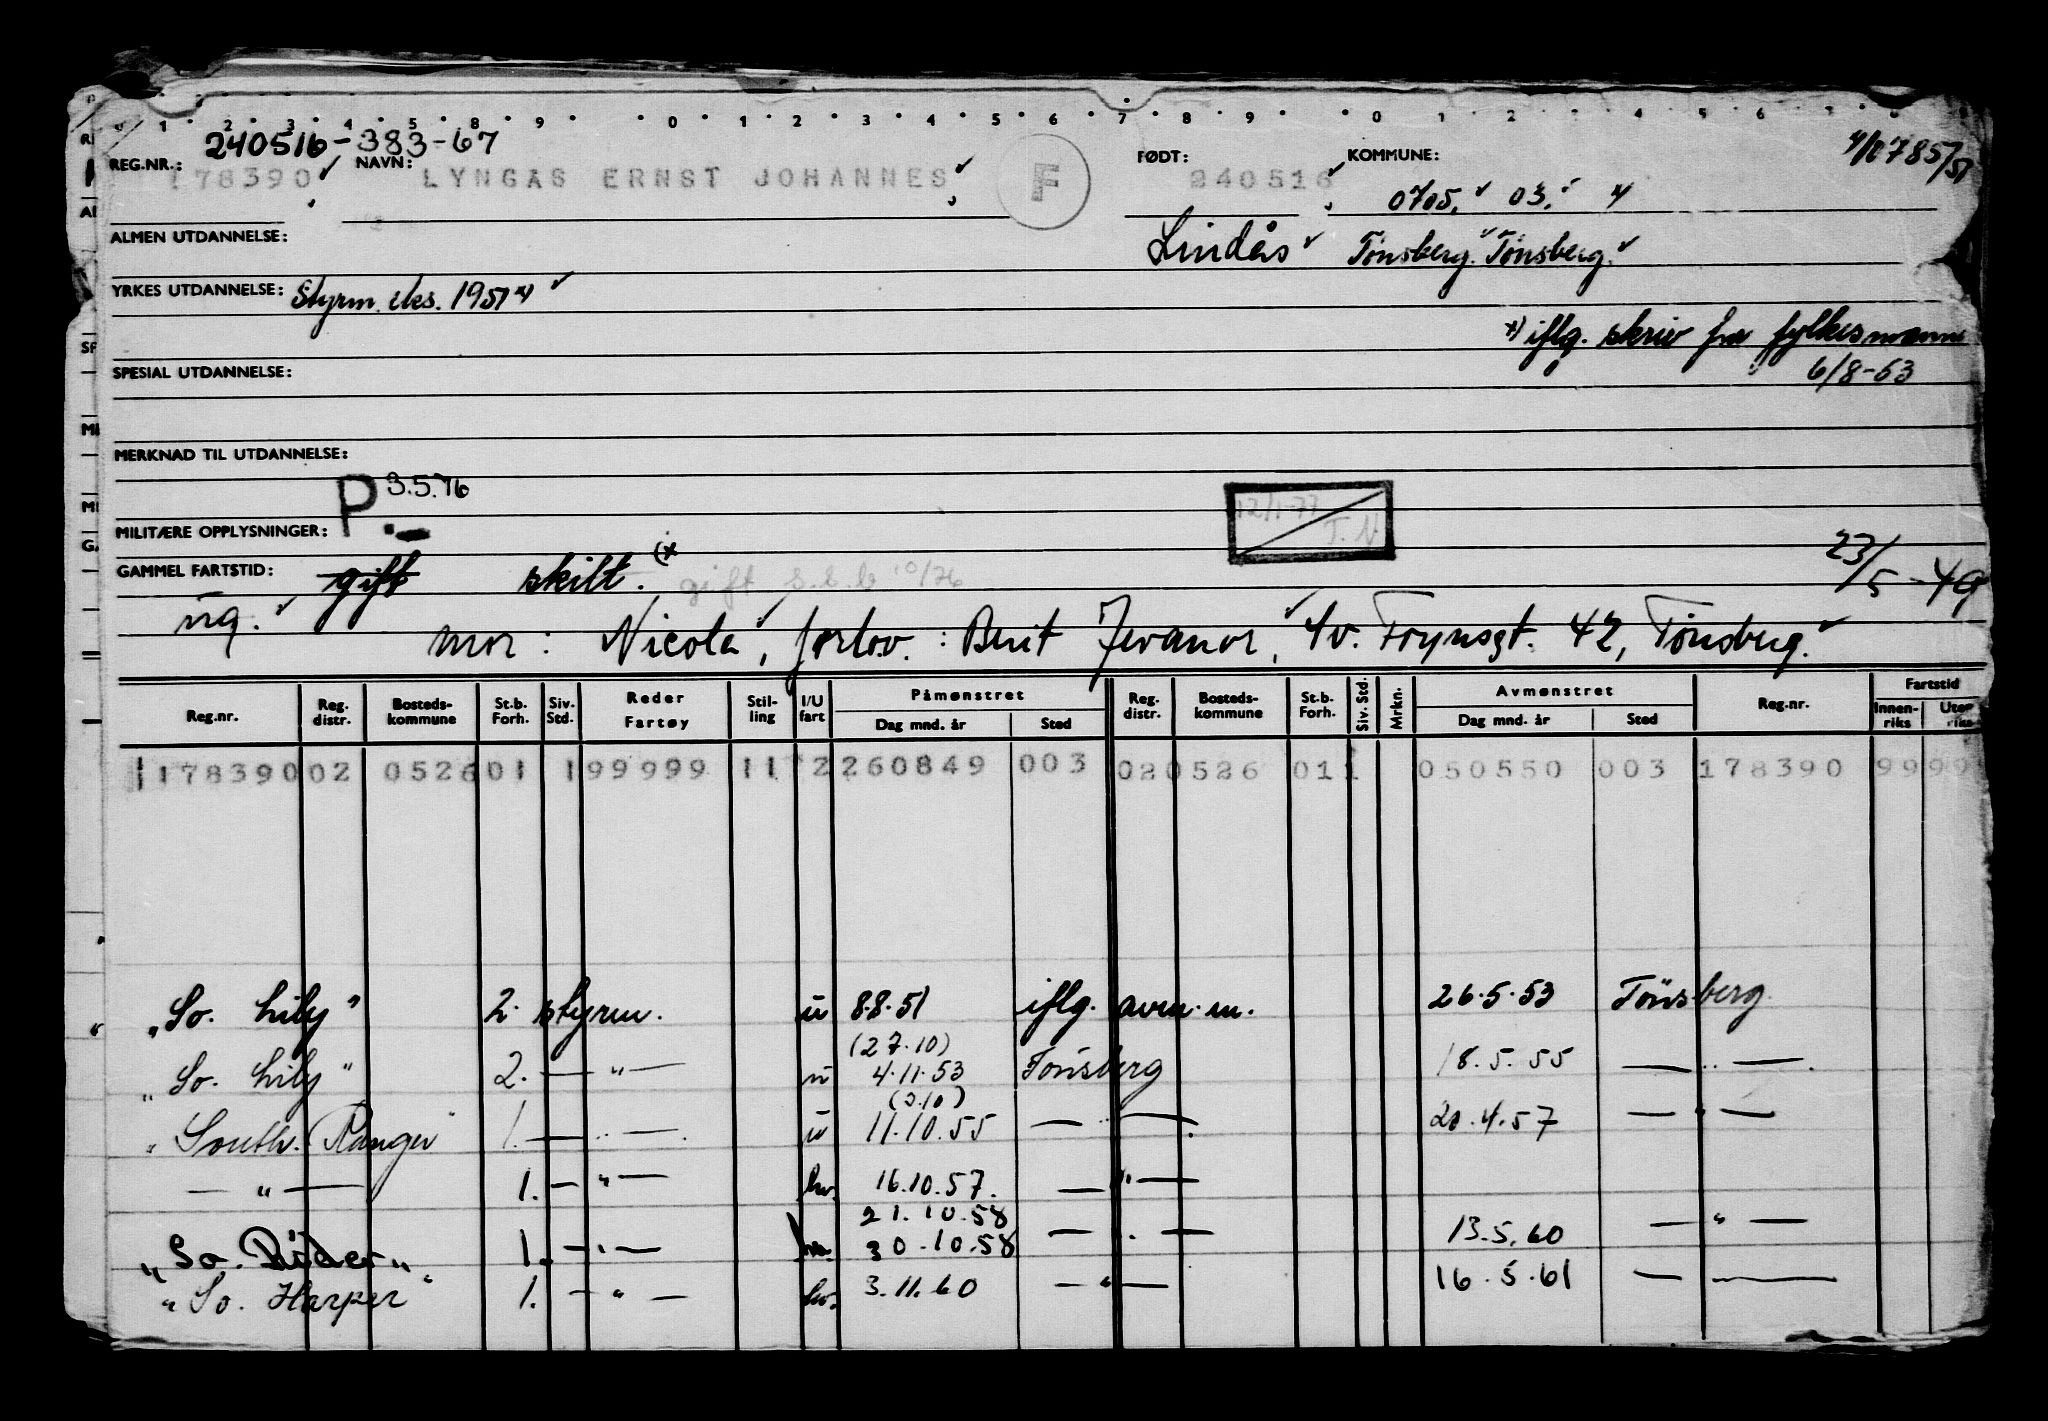 0 1 2 3 4 5 8 9 0 1 2 3 4 5 6 7 8 9 0 1 2 3 4 5 6
240516-383-67
REG.NR.: NAVN: FØDT: KOMMUNE:
178390 LYNGAS ERNST JOHANNES F 240516 0705. 03.
ALMEN UTDANNELSE: Lindås Tønsberg. Tønsberg.
YRKES UTDANNELSE: Styrm. eks. 1951
x) iflg. skriv fra fylkesmann
SPESIAL UTDANNELSE: 6/8-63
MERKNAD TIL UTDANNELSE:
P 3.5.76
12/1-77 T.N
MILITÆRE OPPLYSNINGER:
GAMMEL FARTSTID: gift skilt. (x gift s.b.b 10/76 23/5-49
ug. mor: Nicola, forlov.: Berit Jevanor, Sv. Foynsgt. 42, Tønsberg.
Reg.nr. Reg. distr. Bosteds-kommune St.b. Forh. Siv. Std. Reder Fartøy Stil-ling I/U fart Påmønstret Dag mnd. år Sted Reg. distr. Bosteds-kommune St.b. Forh. Siv. Std. Mrkn. Avmønstret Dag mnd. år Sted Reg.nr. Fartstid Innen-riks Uten riks
178390 02 0526 01 1 99999 117 2 260849 003 02 0526 01 1 050550 003 178390 99 99
"So. Lily" 2. styrm. u 8.8.51 iflg. avm. m. 26.5.53 Tönsberg
(27.10)
"So. Lily" 2. — " — u 4.11.53 Tönsberg 18.5.55 — " —
(3.10)
"South. Ranger" 1. — " — u 11.10.55 — " — 20.4.57 — " —
— " — 1. — " — hv. 16.10.57. — " —
21.10.58
"So. Röder" 1. — " — hv. 30.10.58 — " — 13.5.60 — " —
"So. Harper" 1. — " — hv. 3.11.60 — " — 16.5.61 — " —